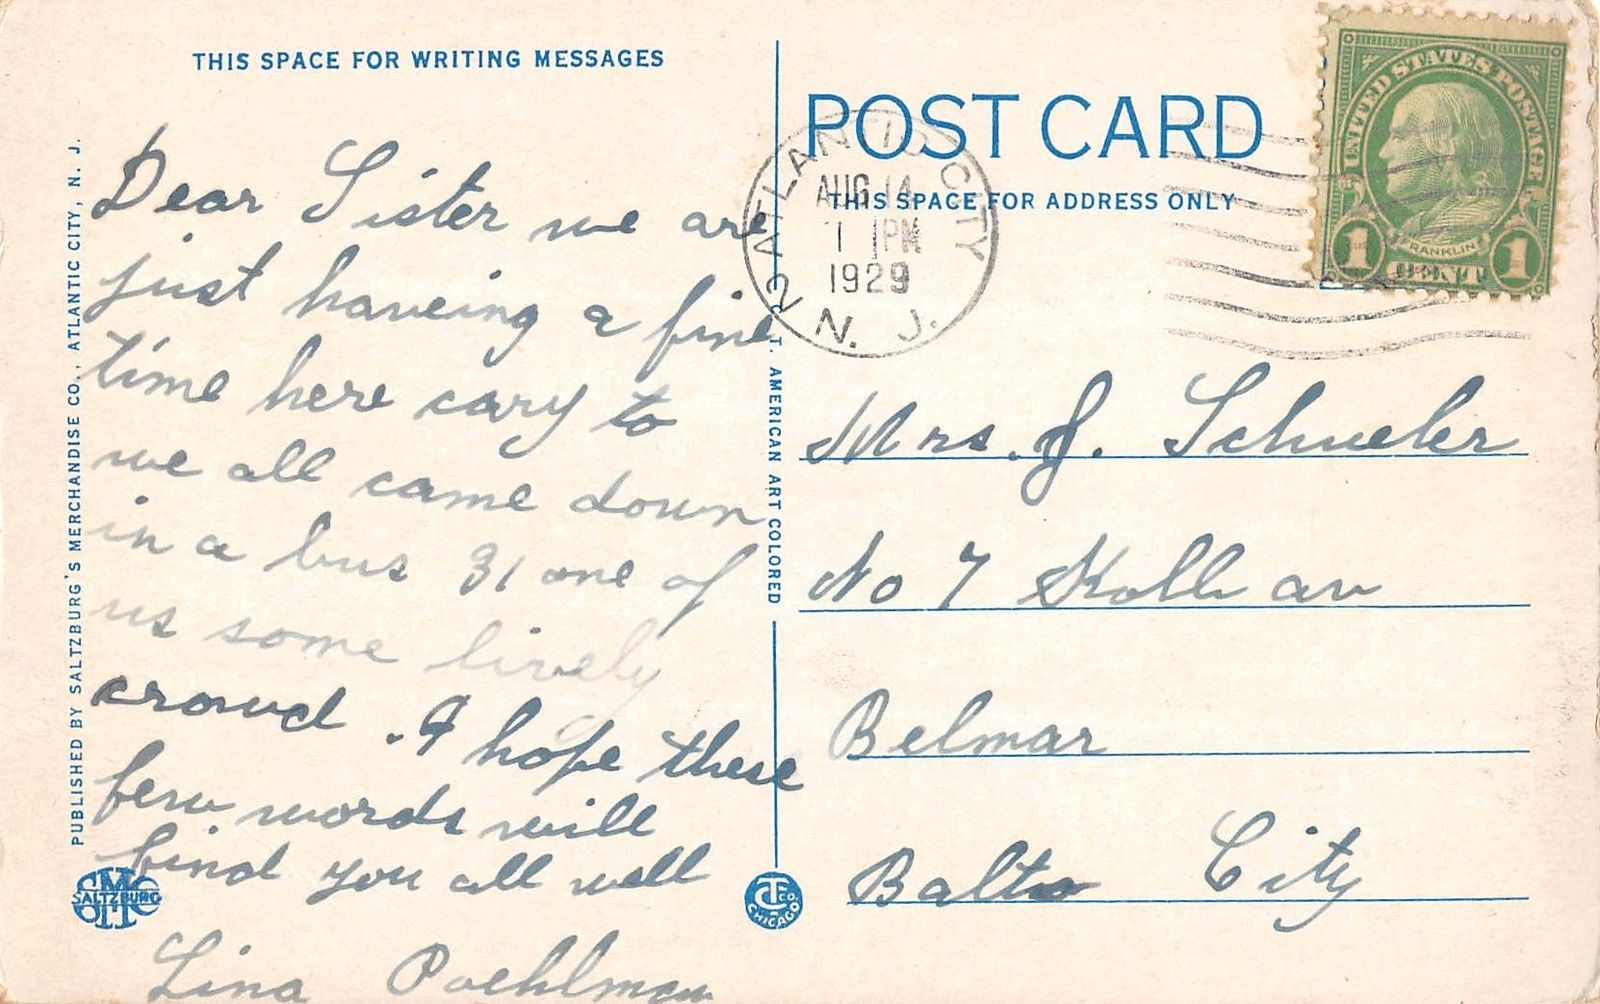 THIS SPACE FOR WRITING MESSAGES
Dear Sister we are
just haveing a fine
time here cary to
we all came down
in a bus 31 one of
us some lively
crowd. I hope these
few words will
find you all well
Lina Poehlman
PUBLISHED BY SALTZBURG'S MERCHANDISE CO., ATLANTIC CITY, N. J.
SALTZBURG
T. AMERICAN ART COLORED
CT CO.
CHICAGO
POST CARD
THIS SPACE FOR ADDRESS ONLY
ATLANTIC CITY
AUG 14
1 PM
1929
N. J.
2
UNITED STATES POSTAGE
FRANKLIN
1 CENT 1
Mrs. J. Schueler
No 7 Kolb av
Belmar
Balto City